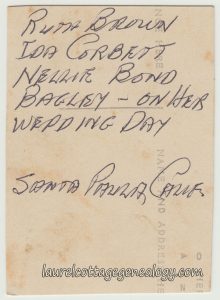 RUTH BROWN
IDA CORBETT
NELLIE BOND
BAGLEY - ON HER
WEDDING DAY
SANTA PAULA, CALIF.
NAME AND ADDRESS
laurelcottagegenealogy.com